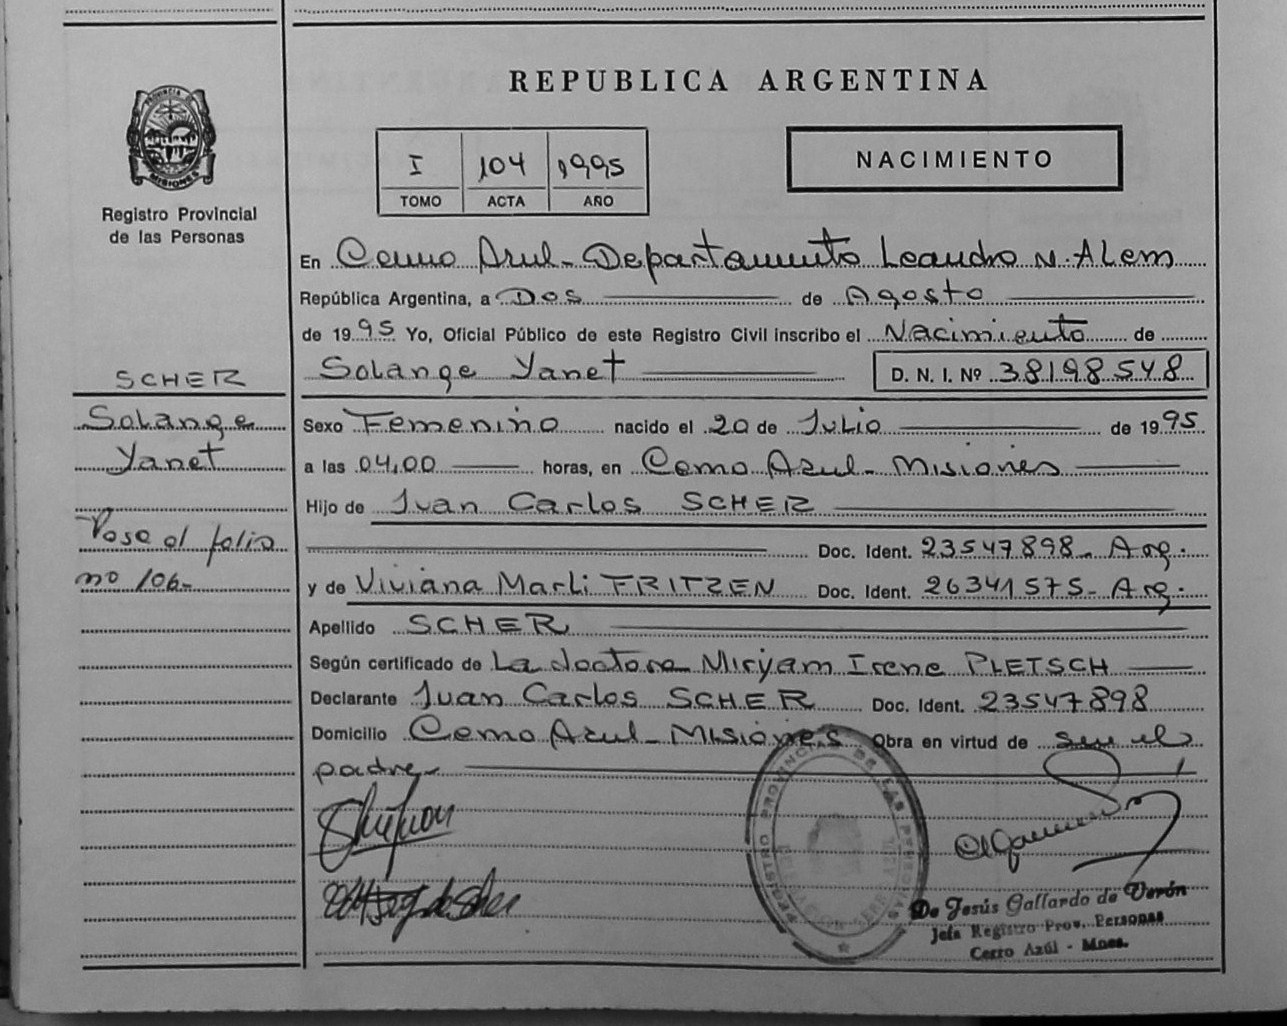 REPUBLICA ARGENTINA
PROVINCIA DE MISIONES
Registro Provincial
de las Personas
I 104 1995
TOMO ACTA AÑO
NACIMIENTO
En Cerro Azul - Departamento Leandro N. Alem
República Argentina, a Dos de Agosto
de 1995 Yo, Oficial Público de este Registro Civil inscribo el Nacimiento de
Solange Yanet D. N. I. Nº 38198548
SCHER
Solange
Yanet
Pase al folio
no 106-
Sexo Femenino nacido el 20 de Julio de 1995
a las 04,00 horas, en Cerro Azul - Misiones
Hijo de Juan Carlos SCHER
Doc. Ident. 23547898 - Arg.
y de Viviana Marli FRITZEN Doc. Ident. 26341575 - Arg.
Apellido SCHER
Según certificado de La doctora Miryam Irene PLETSCH
Declarante Juan Carlos SCHER Doc. Ident. 23547898
Domicilio Cerro Azul - Misiones Obra en virtud de ser el
padre-
REGISTRO PROVINCIAL DE LAS PERSONAS
De Jesús Gallardo de Verón
Jefa Registro Prov. Personas
Cerro Azúl - Mnes.